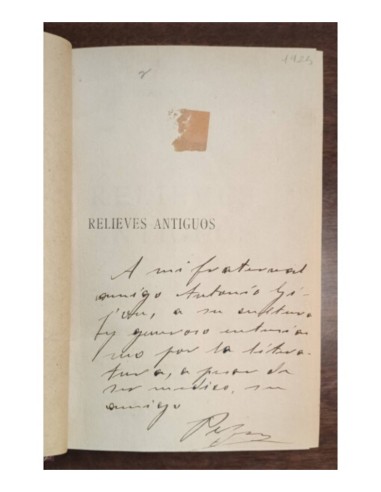 1925
RELIEVES ANTIGUOS
A mi fraternal
amigo Antonio Gi-
jón, a su cultura
y generoso entusias
mo por la litera-
tura, a pesar de
ser medico, su
amigo